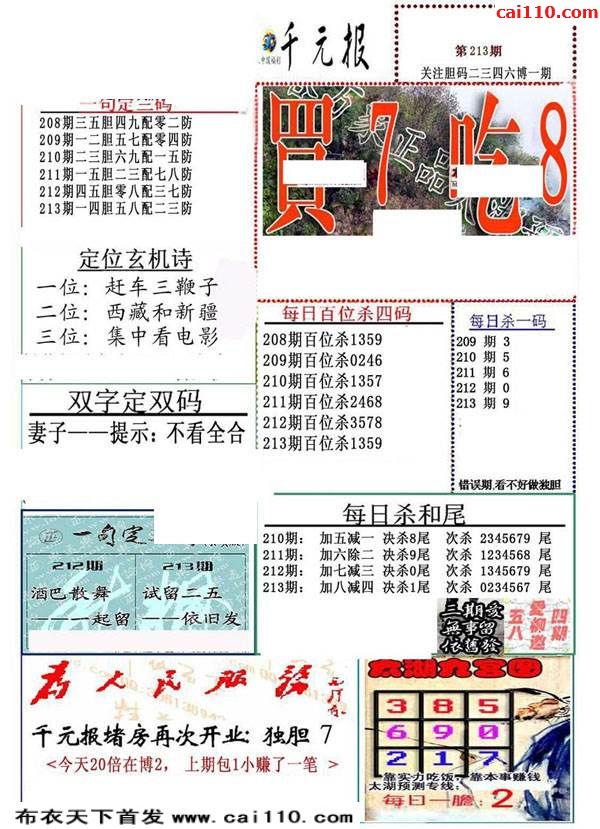 cai110.com
千元报
第213期
关注胆码二三四六博一期
一句定三码
208期三五胆四九配零二防
209期一二胆五七配零四防
210期二三胆六九配一五防
211期一五胆二三配七八防
212期四五胆零八配三七防
213期一四胆五八配二三防
買 7 吃 8
定位玄机诗
一位：赶车三鞭子
二位：西藏和新疆
三位：集中看电影
每日百位杀四码
208期百位杀1359
209期百位杀0246
210期百位杀1357
211期百位杀2468
212期百位杀3578
213期百位杀1359
每日杀一码
209 期 3
210 期 5
211 期 6
212 期 0
213 期 9
错误期,看不好做独胆
双字定双码
妻子——提示：不看全合
每日杀和尾
210期： 加五减一 决杀8尾 次杀 2345679 尾
211期： 加六除二 决杀9尾 次杀 1234568 尾
212期： 加七减三 决杀0尾 次杀 1345679 尾
213期： 加八减四 决杀1尾 次杀 0234567 尾
正 一句定
212期 213期
酒巴散舞 试留二五
———一起留 ——依旧发
三期爱
無事留
依舊發
四期
爱柳邀
五八
為人民服務
千元报堵房再次开业：独胆 7
<今天20倍在博2， 上期包1小赚了一笔 >
太湖九宫图
3 8 5
6 9 0
2 1 7
靠实力吃饭，靠本事赚钱
太湖预测专线：
每日一胆：2
布衣天下首发 www.cai110.com